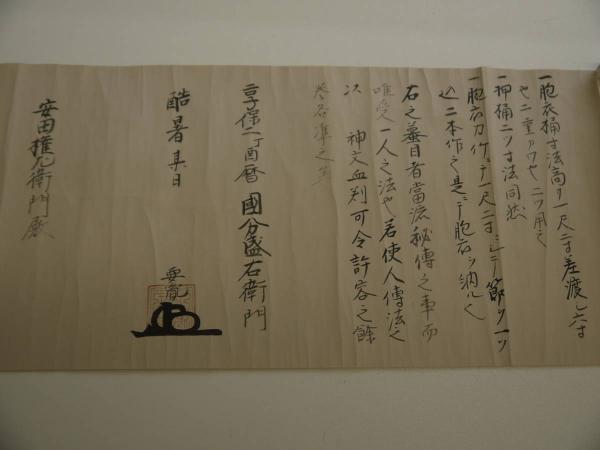 一胞衣桶寸法高サ一尺二寸差渡し六寸
セニ重アワセ二ツ用之
一押桶二ツ寸法同然
一胞衣刀竹ニテ一尺二寸ニシテ節ヲ一ツ
込二本作之是ニテ胞衣ヲ納ル也
右之蟇目者當流秘傳之事而
唯受一人之法也若使人傳法之
次神文血判可令許容之餘
者准之
享保二丁酉暦 國分盛右衛門
酷暑其日
安田権左衛門殿